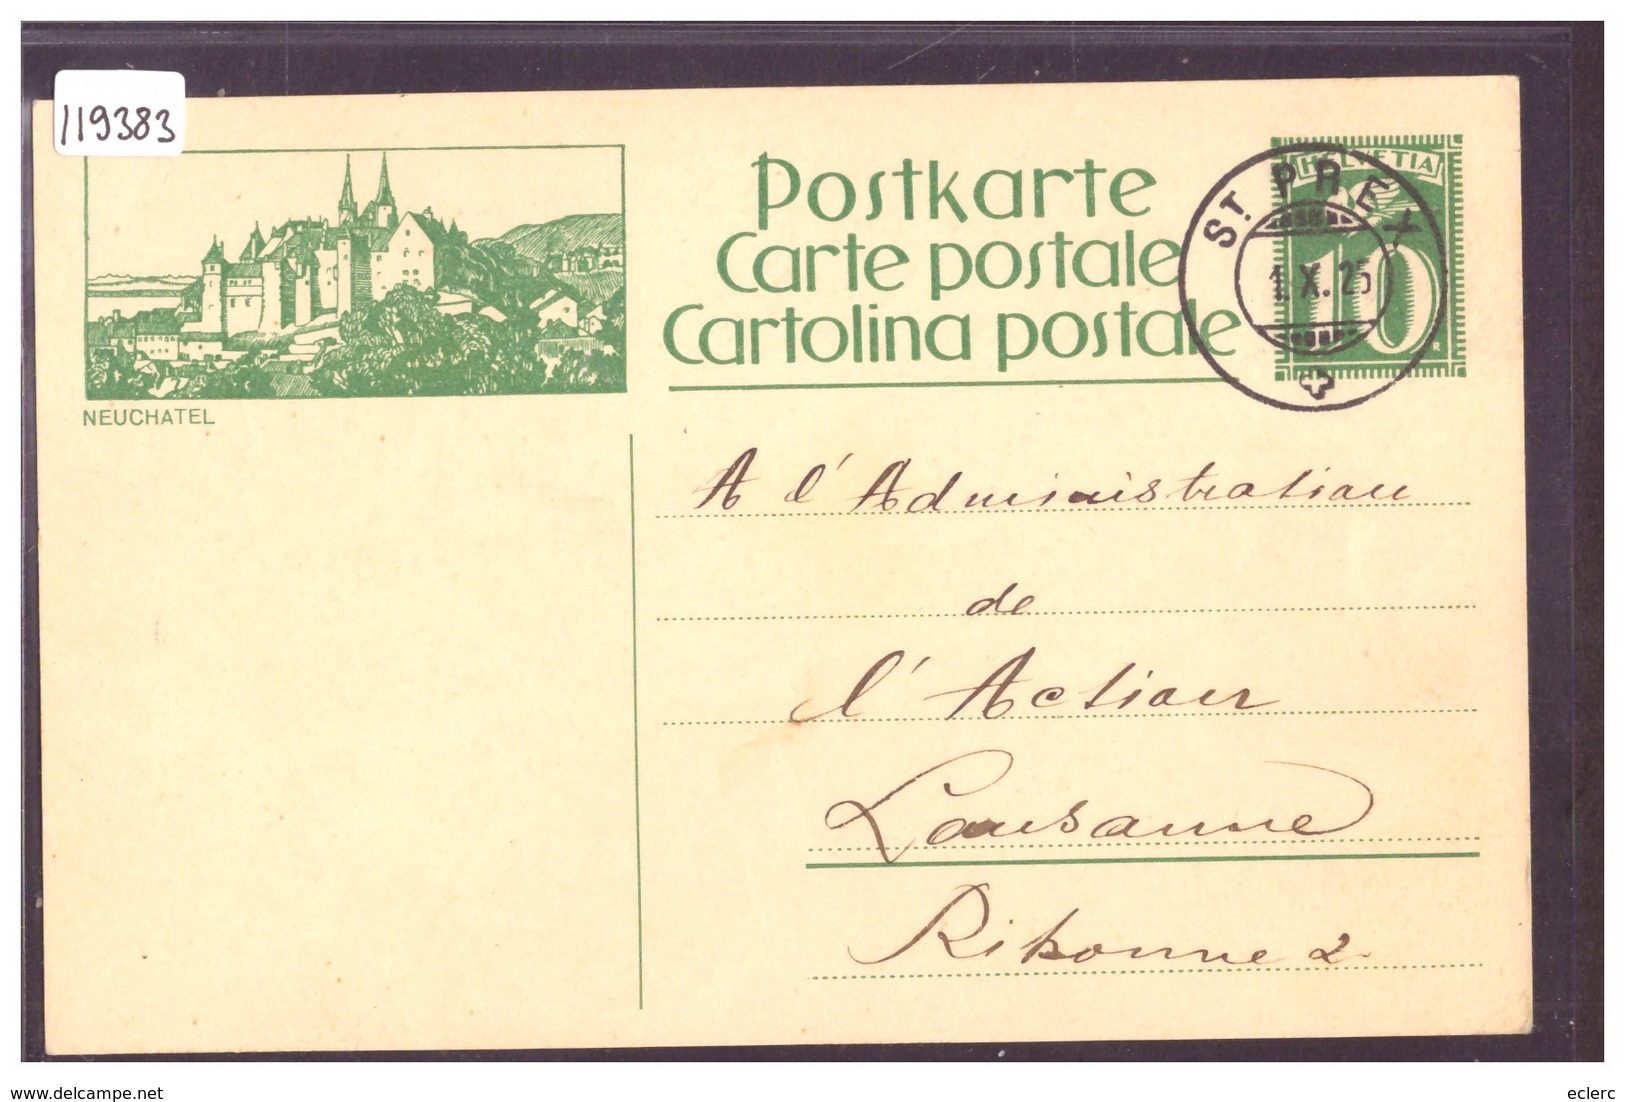 119383
Postkarte
Carte postale
Cartolina postale
HELVETIA
10
ST. PREX
1. X. 25
NEUCHATEL
A l'Administration
de
l'Action
Lausanne
Riponne 2.
www.delcampe.net
eclerc